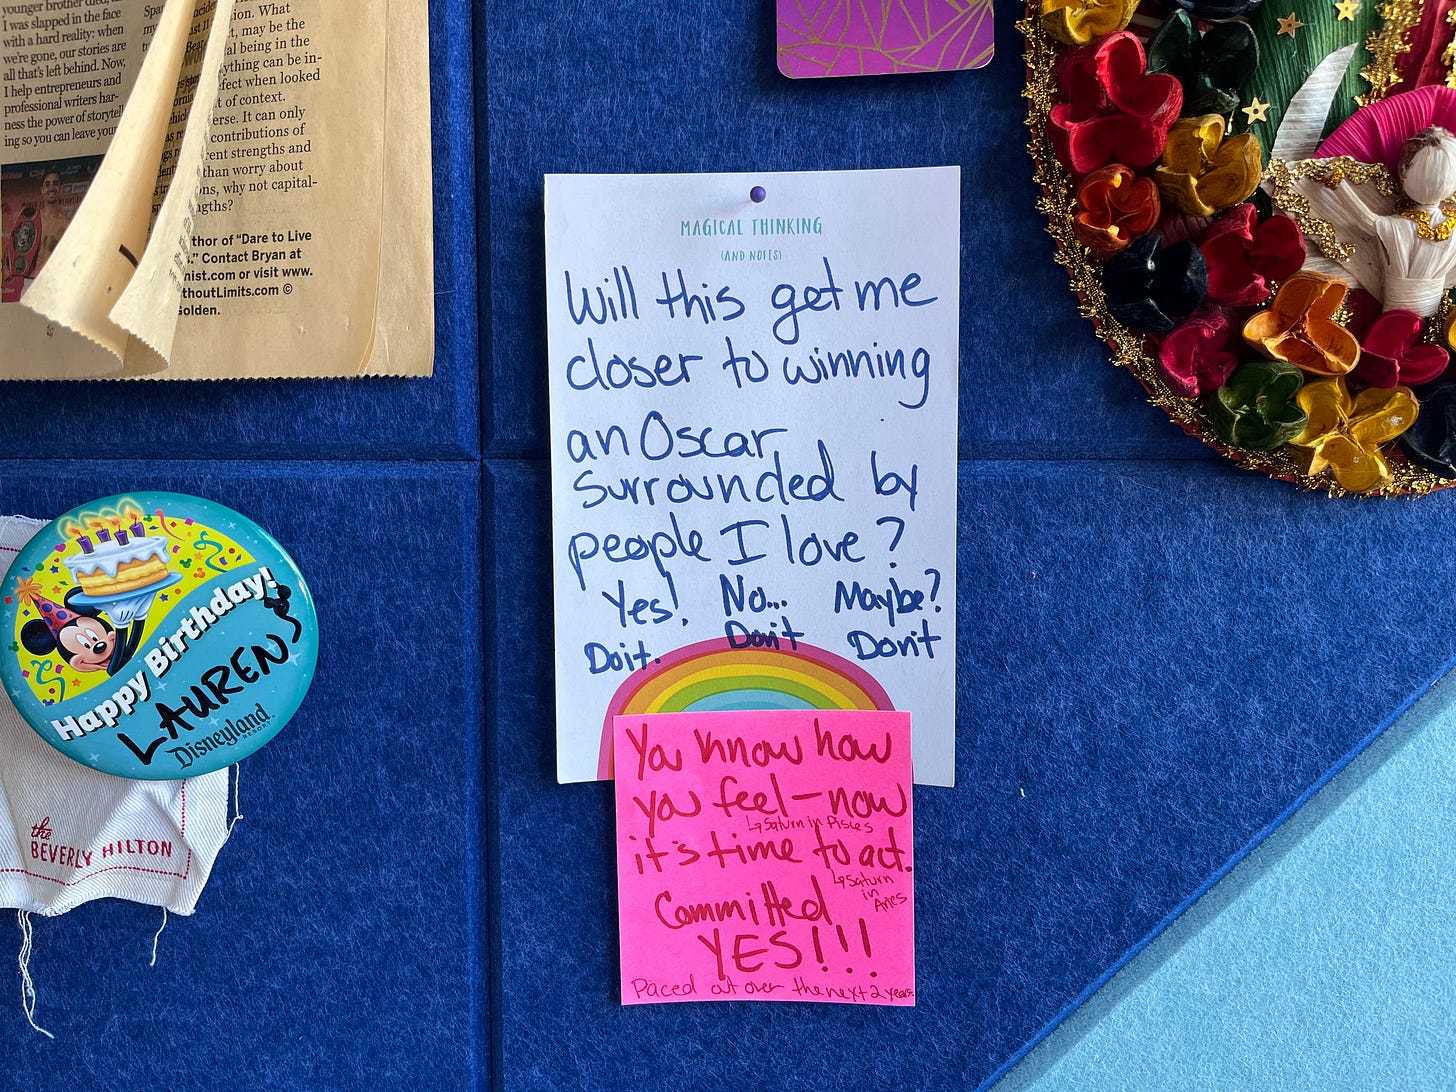 younger brother died,
I was slapped in the face
with a hard reality: when
we're gone, our stories are
all that's left behind. Now,
I help entrepreneurs and
professional writers har-
ness the power of storytel
ing so you can leave your
What
may be the
being in the
ything can be in-
fect when looked
t of context.
erse. It can only
contributions of
rent strengths and
than worry about
ons, why not capital-
ngths?
thor of "Dare to Live
." Contact Bryan at
nist.com or visit www.
thoutLimits.com ©
Golden.
MAGICAL THINKING
(AND NOTES)
Will this get me
closer to winning
an Oscar
surrounded by
people I love?
Yes! No... Maybe?
Do it. Don't Don't
You know how
you feel – now
↳ Saturn in Pisces
it's time to act.
↳ Saturn
in
Aries
Committed
YES!!!
Paced out over the next 2 years.
Happy Birthday!
LAUREN
Disneyland
RESORT
the
BEVERLY HILTON